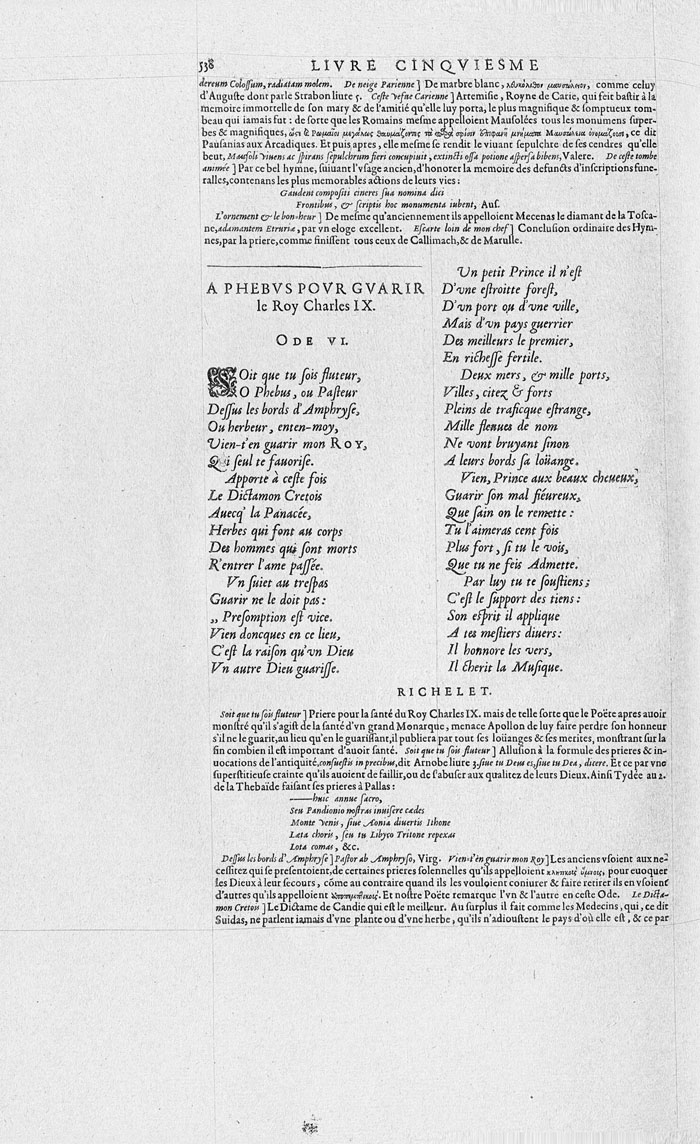 538 LIVRE CINQVIESME
dereum Colossum, radiatam molem. De neige Parienne ] De marbre blanc, comme celuy
d'Auguste dont parle Strabon liure 5. Ceste Vefue Carienne ] Artemisie, Royne de Carie, qui feit bastir à la
memoire immortelle de son mary & de l'amitié qu'elle luy porta, le plus magnifique & somptueux tom-
beau qui iamais fut : de sorte que les Romains mesme appelloient Mausolées tous les monumens super-
bes & magnifiques, ce dit
Pausanias aux Arcadiques. Et puis apres, elle mesme se rendit le viuant sepulchre de ses cendres qu'elle
beut, Mausoli viuens ac spirans sepulchrum fieri concupiuit, extincti ossa potione aspersa bibens, Valere. De ceste tombe
animée ] Par ce bel hymne, suiuant l'vsage ancien, d'honorer la memoire des defuncts d'inscriptions fune-
ralles, contenans les plus memorables actions de leurs vies :
Gaudent compositi cineres sua nomina dici
Frontibus, & scriptis hoc monumenta iubent, Aus.
L'ornement & le bon-heur ] De mesme qu'anciennement ils appelloient Mecenas le diamant de la Tosca-
ne, adamantem Etruriæ, par vn eloge excellent. Escarte loin de mon chef ] Conclusion ordinaire des Hym-
nes, par la priere, comme finissent tous ceux de Callimach, & de Marulle.
A PHEBVS POVR GVARIR
le Roy Charles IX.
ODE VI.
SOit que tu sois fluteur,
O Phebus, ou Pasteur
Dessus les bords d'Amphryse,
Ou herbeur, enten-moy,
Vien-t'en guarir mon ROY,
Qui seul te fauorise.
Apporte à ceste fois
Le Dictamon Cretois
Auecq' la Panacée,
Herbes qui font au corps
Des hommes qui sont morts
R'entrer l'ame passée.
Vn suiet au trespas
Guarir ne le doit pas :
„ Presomption est vice.
Vien doncques en ce lieu,
C'est la raison qu'vn Dieu
Vn autre Dieu guarisse.
Un petit Prince il n'est
D'vne estroitte forest,
D'vn port ou d'vne ville,
Mais d'vn pays guerrier
Des meilleurs le premier,
En richesse fertile.
Deux mers, & mille ports,
Villes, citez & forts
Pleins de traficque estrange,
Mille fleuues de nom
Ne vont bruyant sinon
A leurs bords sa loüange.
Vien, Prince aux beaux cheueux,
Guarir son mal fiéureux,
Que sain on le remette :
Tu l'aimeras cent fois
Plus fort, si tu le vois,
Que tu ne feis Admette.
Par luy tu te soustiens ;
C'est le support des tiens :
Son esprit il applique
A tes mestiers diuers :
Il honnore les vers,
Il cherit la Musique.
RICHELET.
Soit que tu sois fluteur ] Priere pour la santé du Roy Charles IX. mais de telle sorte que le Poëte apres auoir
monstré qu'il s'agist de la santé d'vn grand Monarque, menace Apollon de luy faire perdre son honneur
s'il ne le guarit, au lieu qu'en le guarissant, il publiera par tout ses loüanges & ses merites, monstrant sur la
fin combien il est important d'auoir santé. Soit que tu sois fluteur ] Allusion à la formule des prieres & in-
uocations de l'antiquité, consuestis in precibus, dit Arnobe liure 3. siue tu Deus es, siue tu Dea, dicere. Et ce par vne
superstitieuse crainte qu'ils auoient de faillir, ou de s'abuser aux qualitez de leurs Dieux. Ainsi Tydée au 2.
de la Thebaïde faisant ses prieres à Pallas :
——huic annue sacro,
Seu Pandionio nostras inuisere cædes
Monte Venis, siue Aonia diuertis Ithone
Læta choris, seu tu Libyco Tritone repexas
Lota comas, &c.
Dessus les bords d'Amphryse ] Pastor ab Amphryso, Virg. Vien-t'en guarir mon Roy ] Les anciens vsoient aux ne-
cessitez qui se presentoient, de certaines prieres solennelles qu'ils appelloient κλητικοὺς ὕμνους, pour euoquer
les Dieux à leur secours, cõme au contraire quand ils les vouloient coniurer & faire retirer ils en vsoient
d'autres qu'ils appelloient Et nostre Poëte remarque l'vn & l'autre en ceste Ode. Le Dicta-
mon Cretois ] Le Dictame de Candie qui est le meilleur. Au surplus il fait comme les Medecins, qui, ce dit
Suidas, ne parlent iamais d'vne plante ou d'vne herbe, qu'ils n'adioustent le pays d'où elle est, & ce par